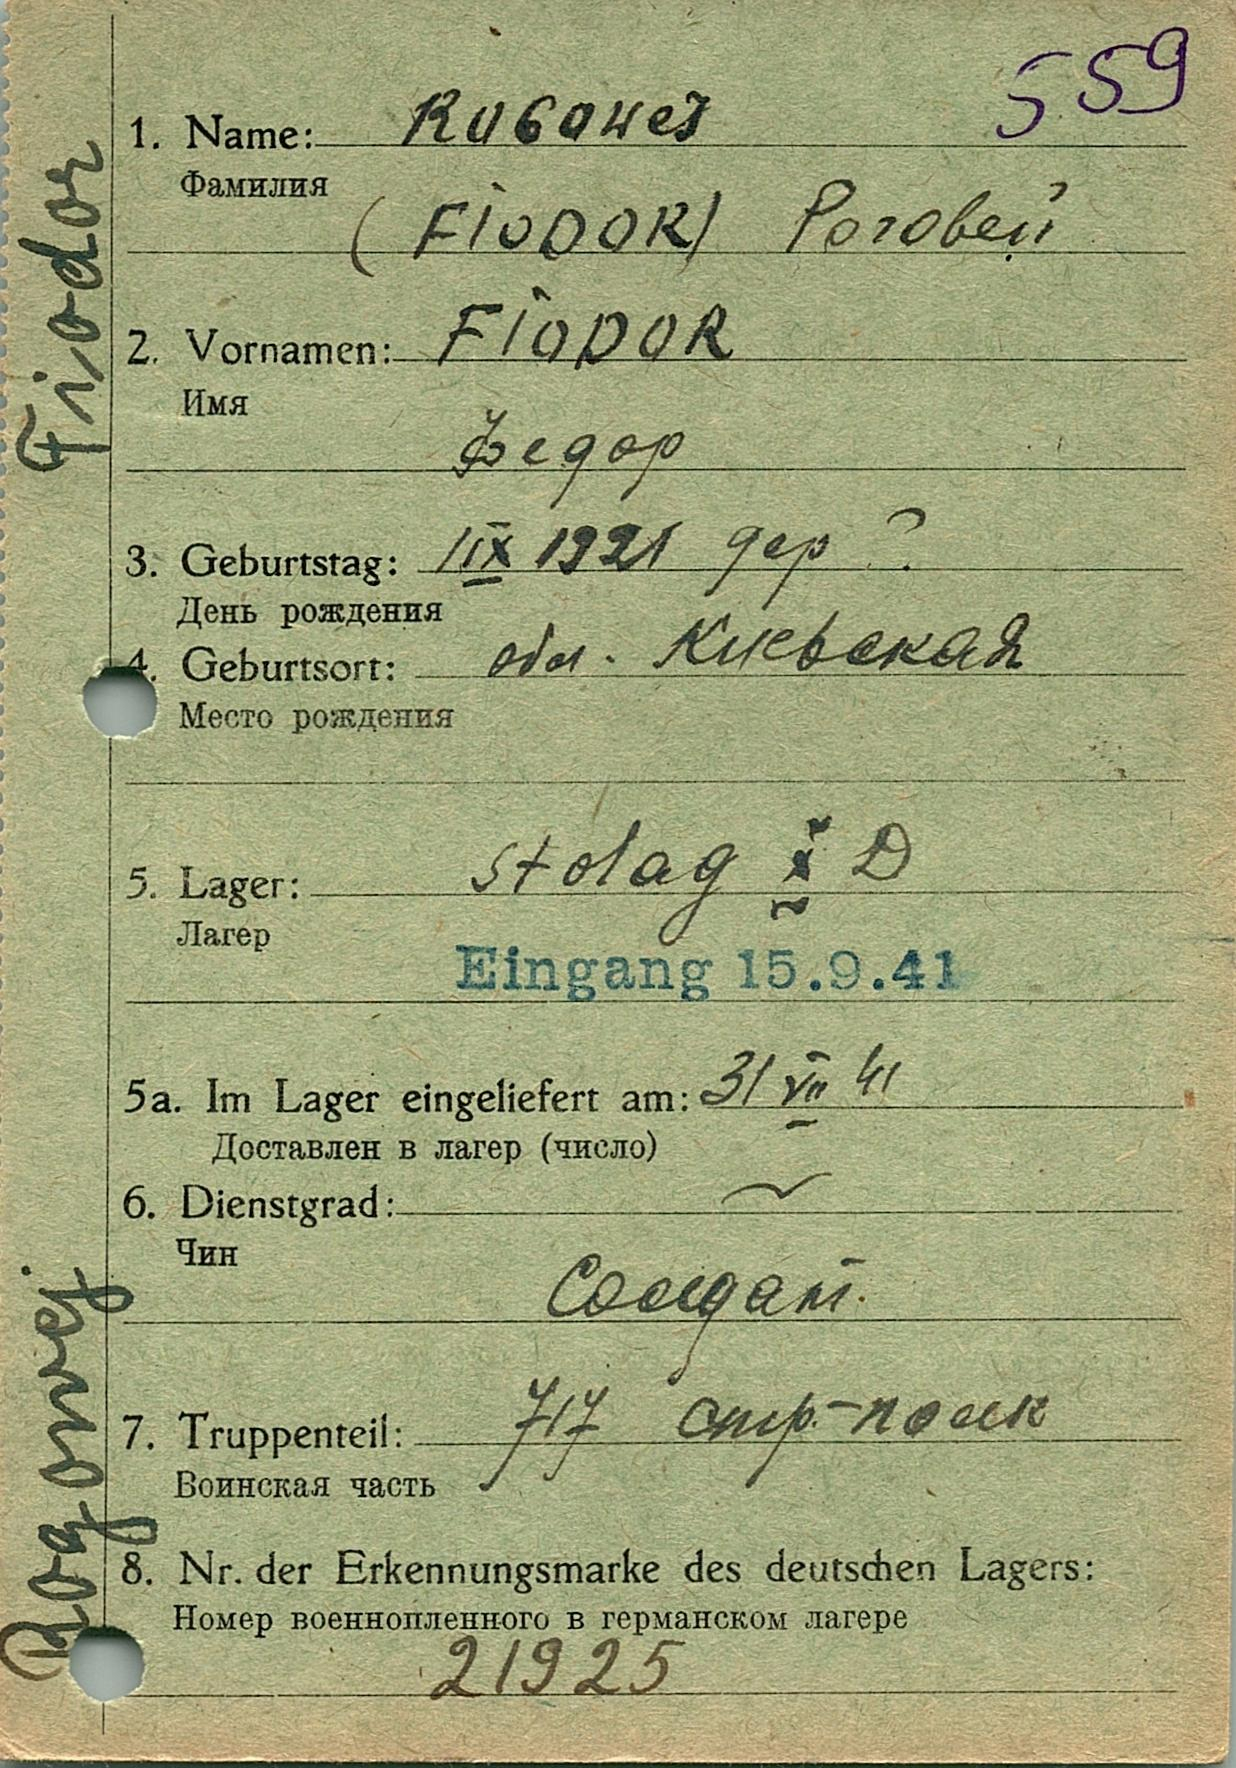 559
1. Name:
Фамилия
(FIODOR) Роговей
2. Vornamen: FIODOR
Имя
Федор
3. Geburtstag: 1921 дер ?
День рождения
4. Geburtsort: обл. Киевская
Место рождения
5. Lager: Stalag X D
Лагер
Eingang 15.9.41
5a. Im Lager eingeliefert am: 31 VII 41
Доставлен в лагер (число)
6. Dienstgrad:
Чин
Солдат.
7. Truppenteil: 717 стр-полк
Воинская часть
8. Nr. der Erkennungsmarke des deutschen Lagers:
Номер военнопленного в германском лагере
21925
Rogowej Fiodor